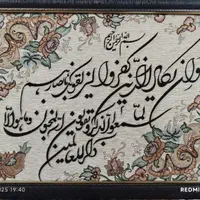 بسم الله الرحمن الرحیم
وان یکاد الذین کفروا لیزلقونک بابصارهم
لما سمعوا الذکر و یقولون انه لمجنون و ما هو الا
ذکر للعالمین
2025 19:40
REDMI